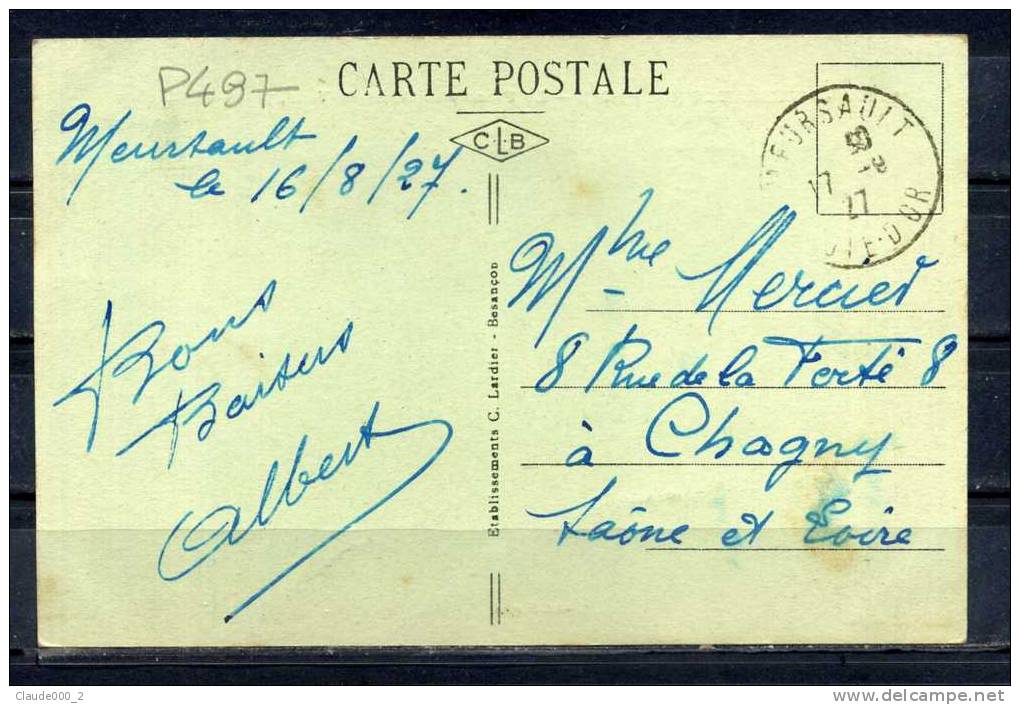 P497
CARTE POSTALE
Meursault
le 16/8/27.
C.L.B
MEURSAULT
17 -8
27
COTE-D'OR
Bons
Baisers
Albert
Etablissements C. Lardier - Besançon
Mme Mercier
8 Rue de la Ferté 8
à Chagny
Saône et Loire
Claude000_2
www.delcampe.net